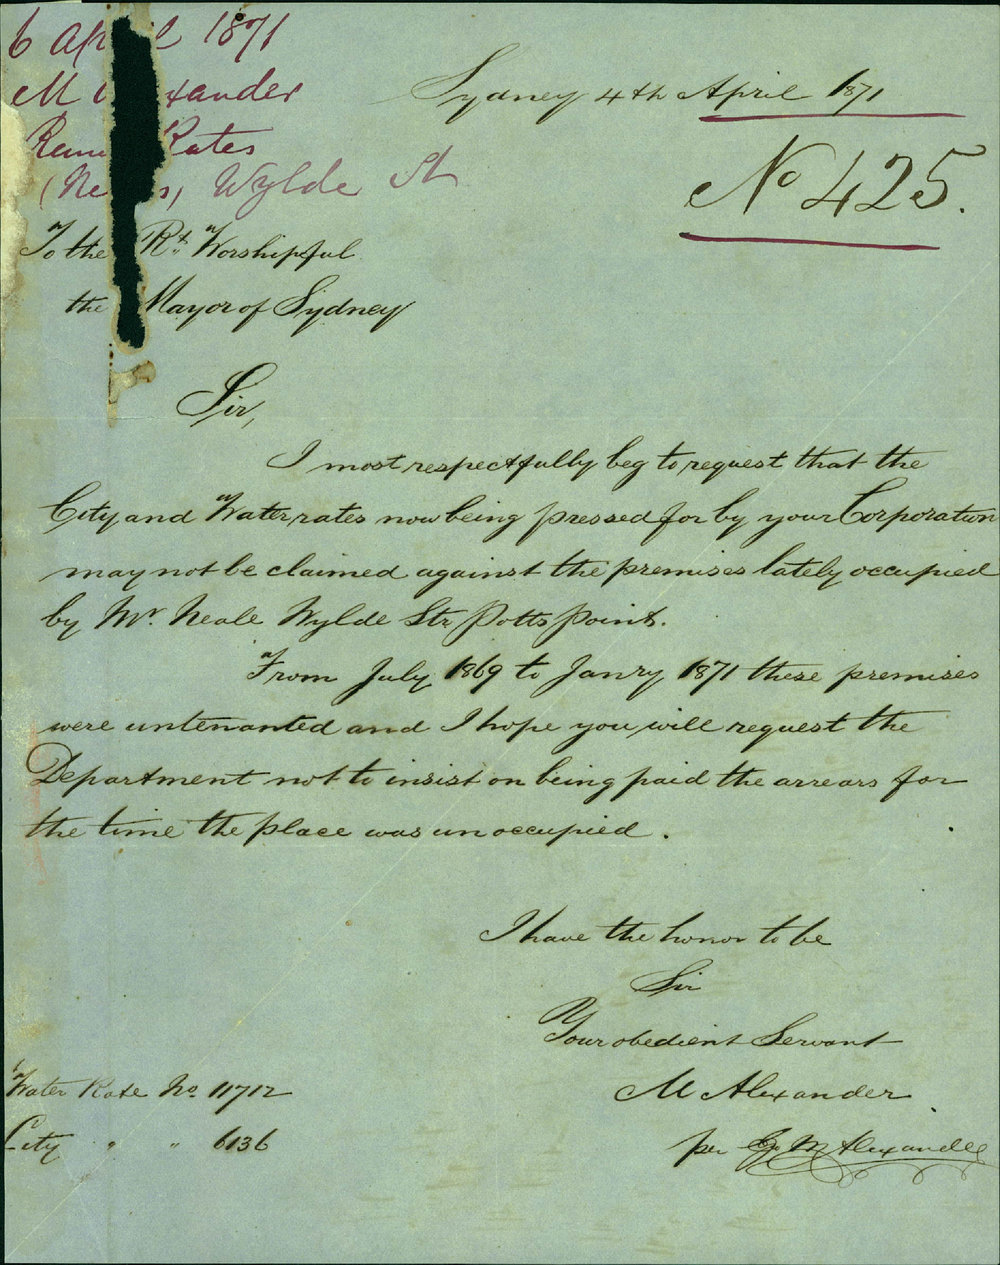 6 April 1871
M Alexander
Rates
Wylde St
Sydney 4th April 1871
No 425.
To the Rt. Worshipful
the Mayor of Sydney
Sir,
I most respectfully beg to request that the
City and Water rates now being pressed for by your Corporation
may not be claimed against the premises lately occupied
by Mr. Neale Wylde Str Potts Point.
From July 1869 to Janry 1871 these premises
were untenanted and I hope you will request the
Department not to insist on being paid the arrears for
the time the place was unoccupied.
I have the honor to be
Sir
Your obedient Servant
M Alexander
per M Alexander
Water Rate No 11712
City " " 6136